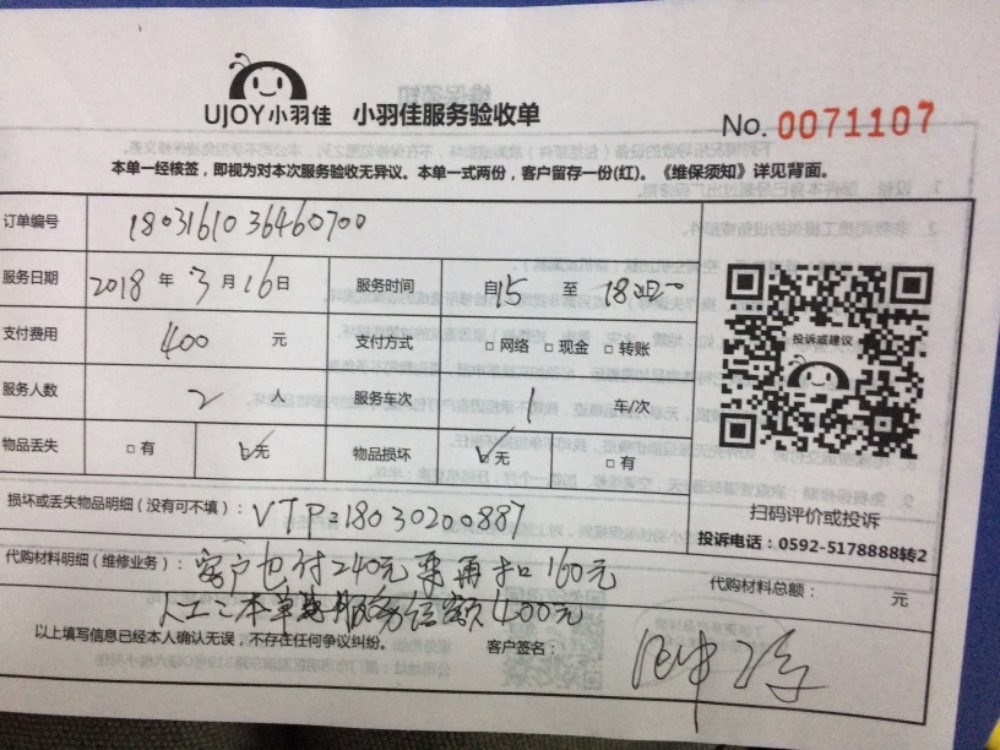 UJOY小羽佳 小羽佳服务验收单
No. 0071107
本单一经核签，即视为对本次服务验收无异议。本单一式两份，客户留存一份(红)。《维保须知》详见背面。
订单编号 180316103646​0700
服务日期 2018 年 3 月 16 日 服务时间 自15 至 18
支付费用 400 元 支付方式 □ 网络 □ 现金 □ 转账
服务人数 2 人 服务车次 1 车/次
物品丢失 □ 有 ☑无 物品损坏 ☑无 □ 有
投诉或建议
扫码评价或投诉
投诉电话：0592-5178888转2
损坏或丢失物品明细（没有可不填）： VTP21803020088​7
代购材料明细（维修业务）： 客户已付240元 再扣160元
代购材料总额： 元
本单 服务 额400元
以上填写信息已经本人确认无误，不存在任何争议纠纷。 客户签名：